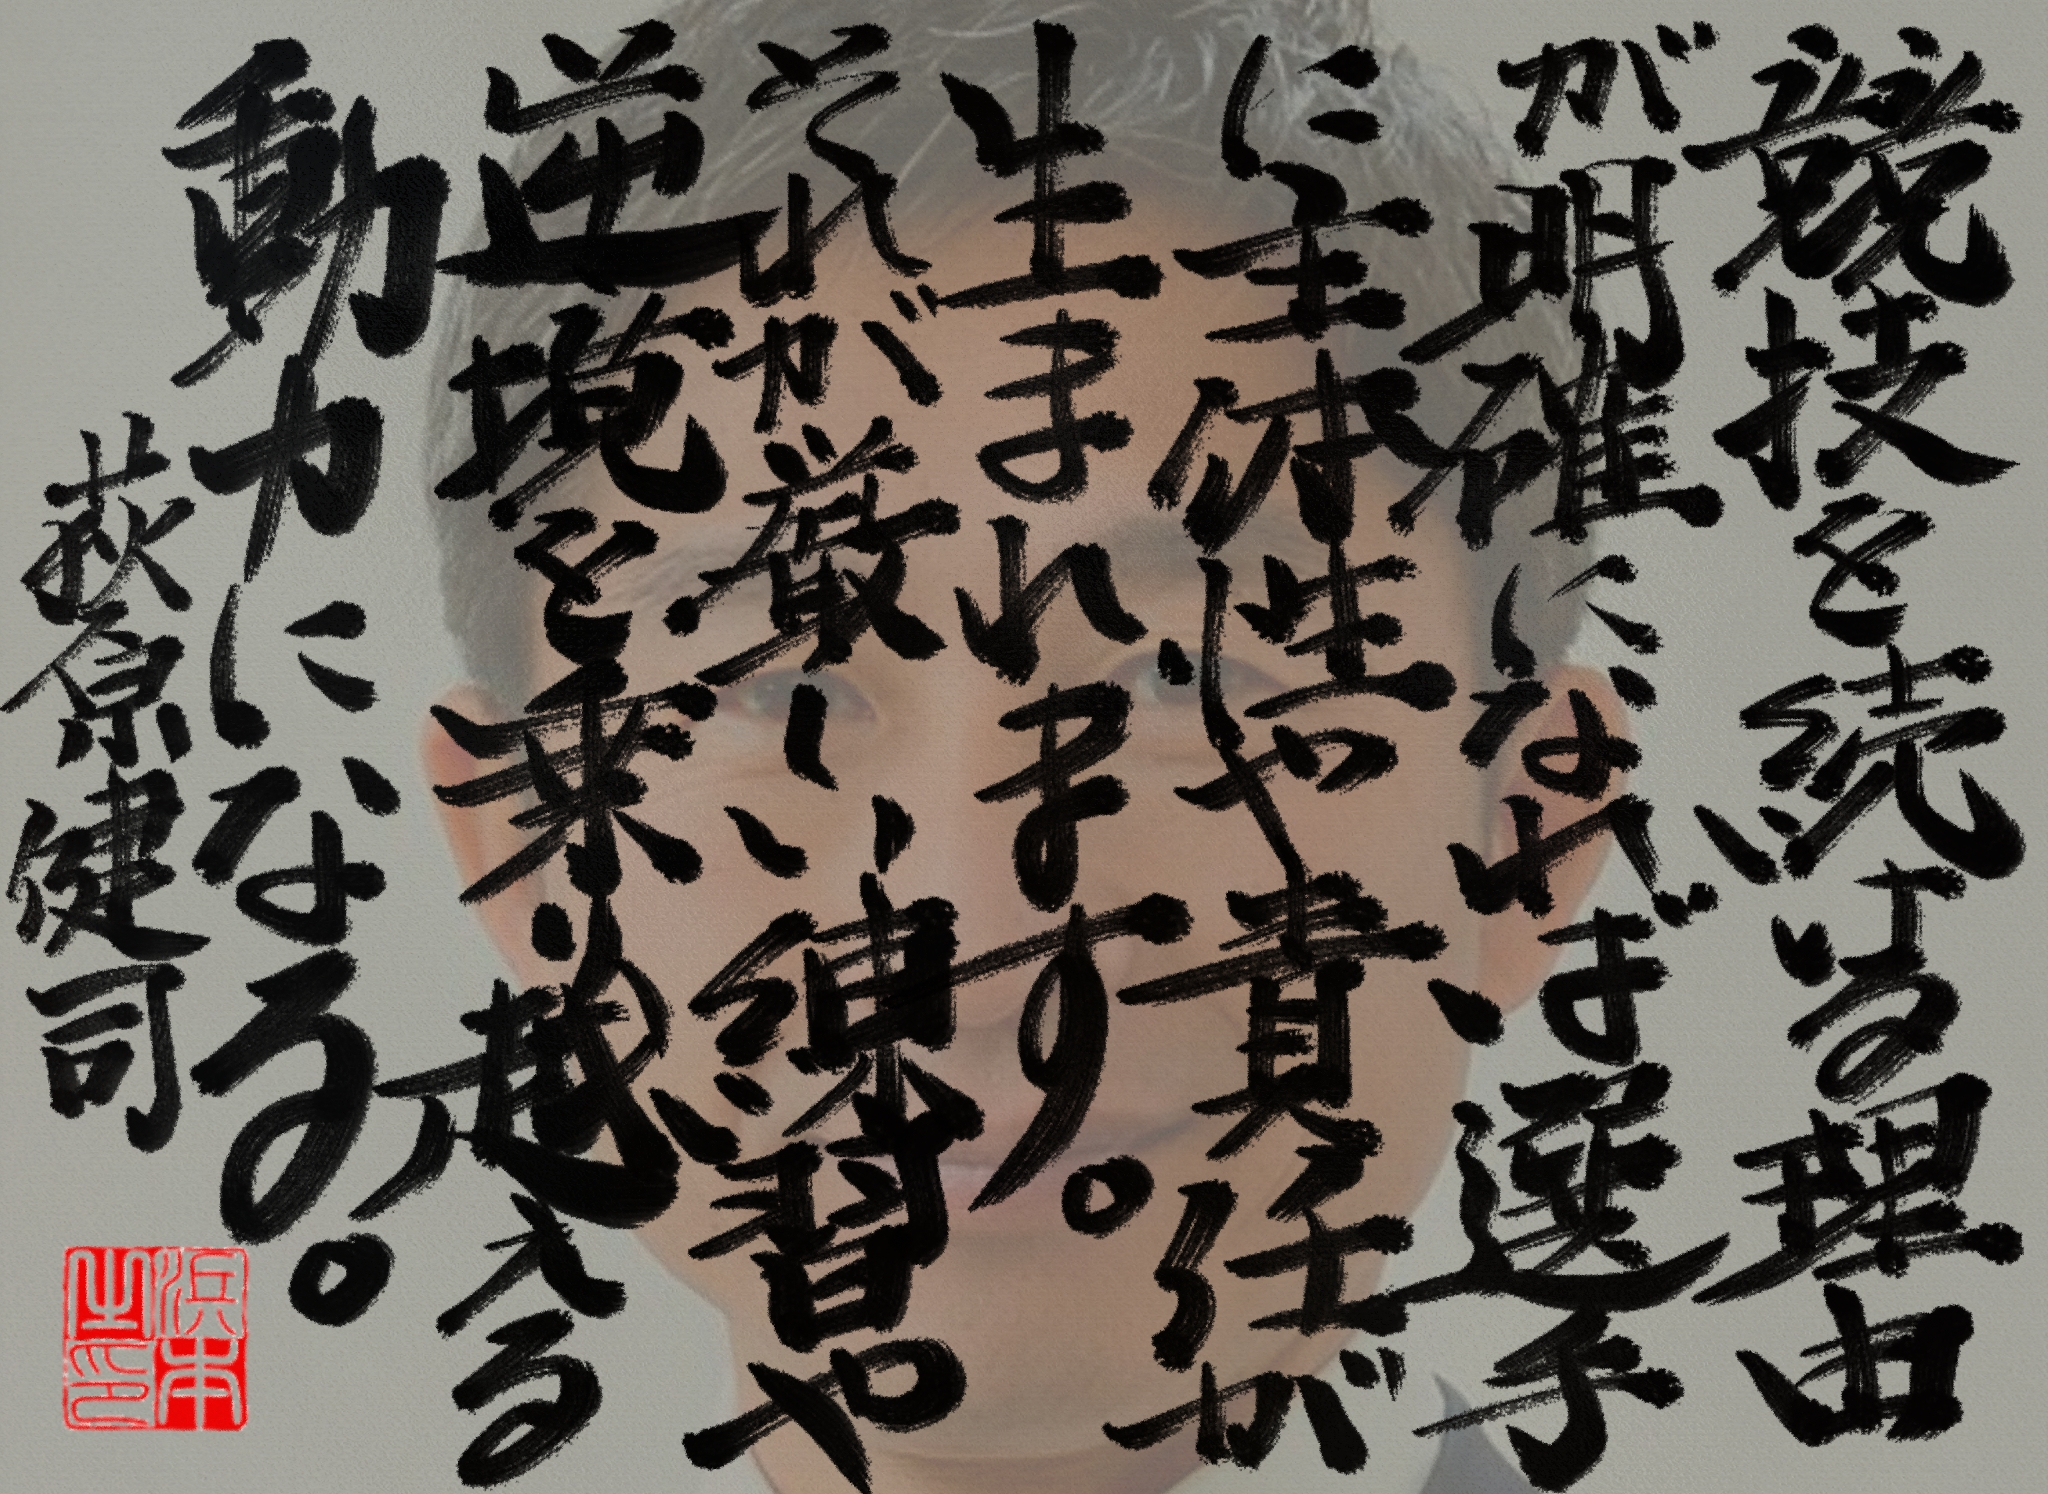 競技を続ける理由
が明確になれば選手
に主体性や責任が
生まれます。
それが厳しい練習や
逆境を乗り越える
動力になる。
荻原健司
浜本之印